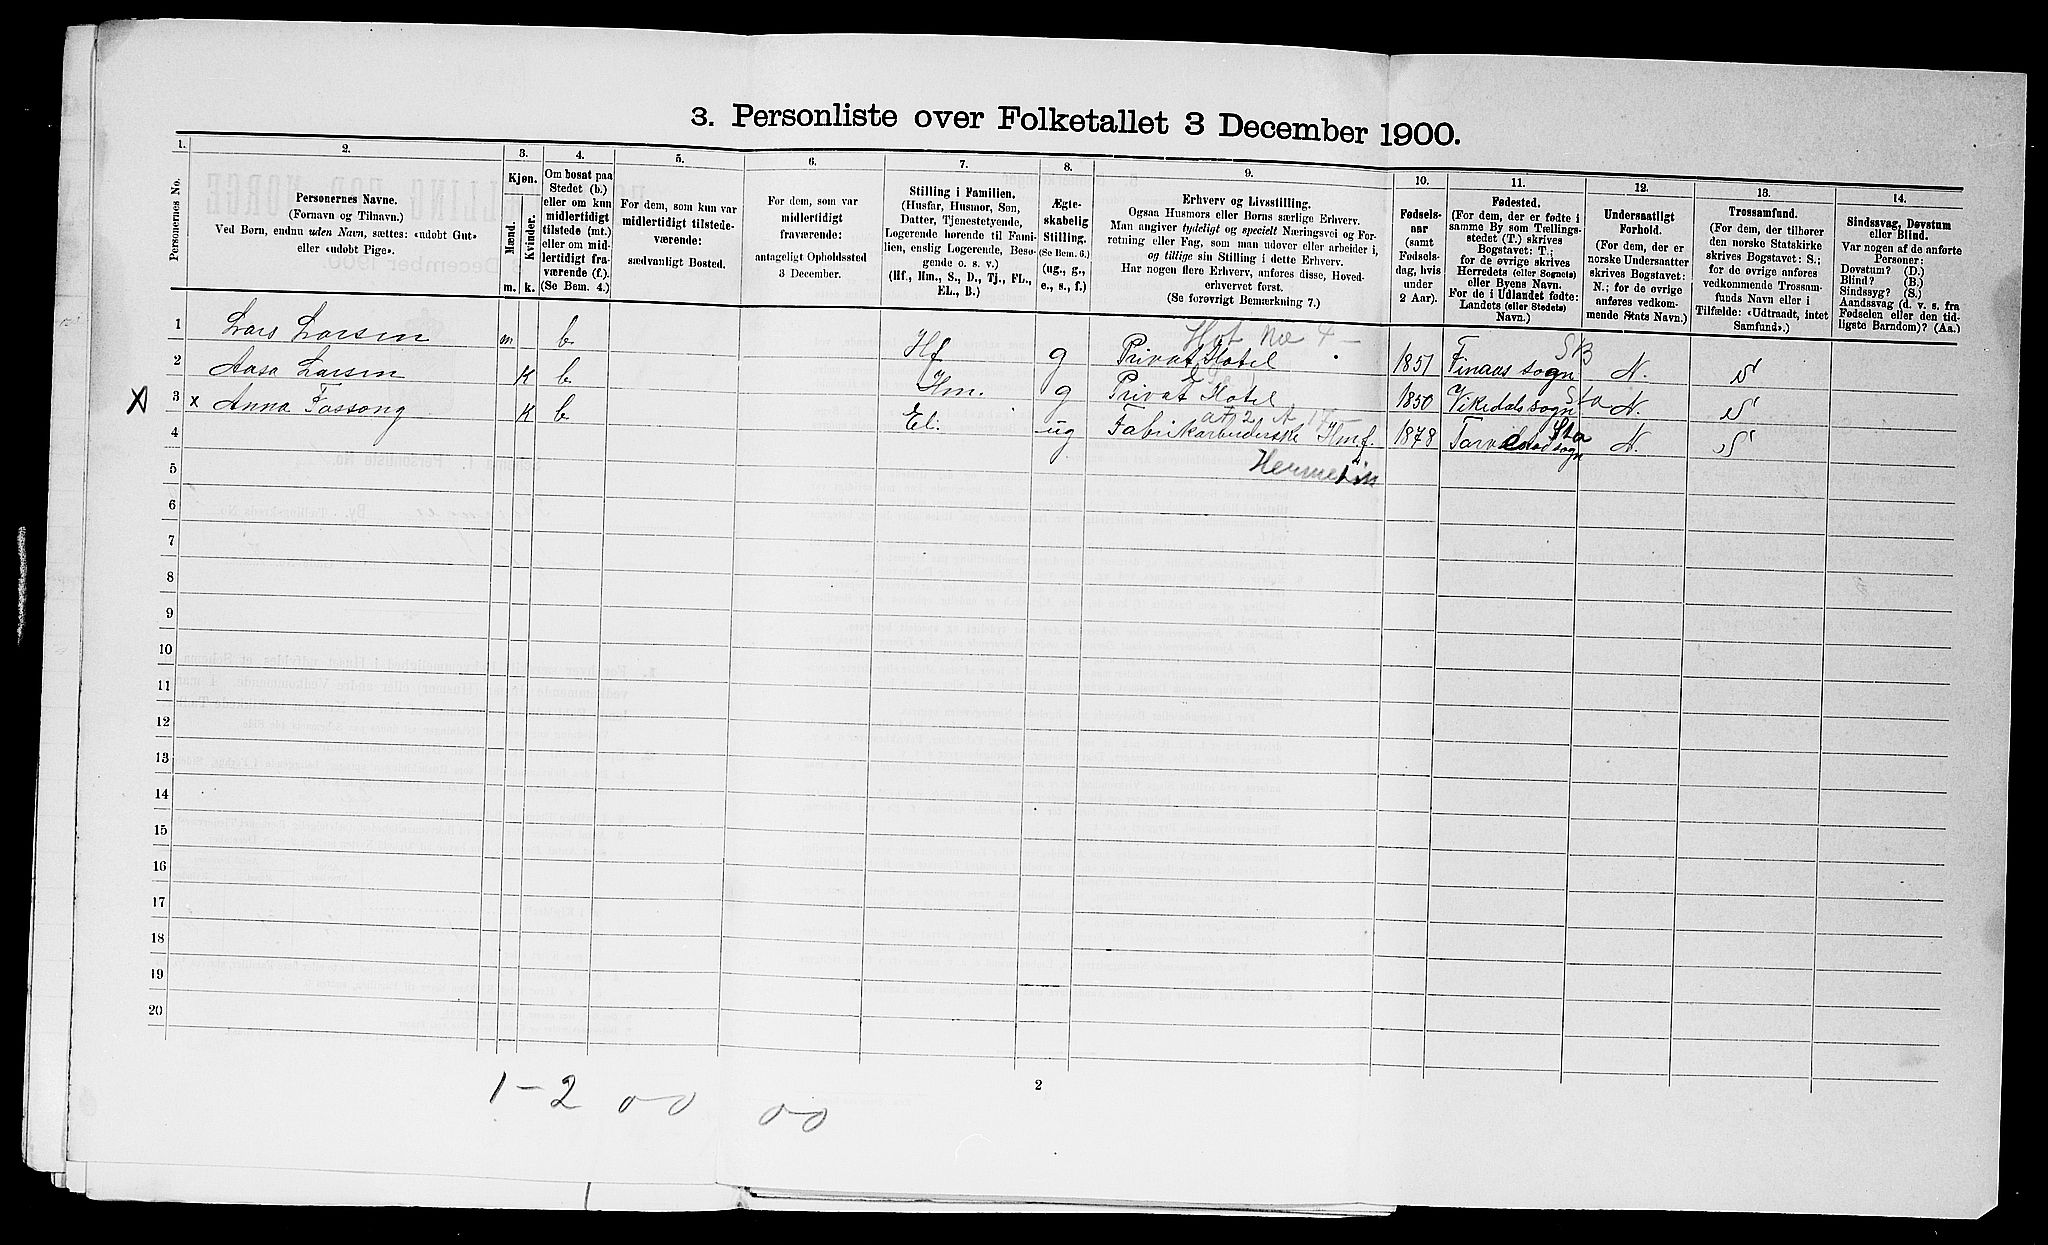 3. Personliste over Folketallet 3 December 1900.
1. 2. 3. 4. 5. 6. 7. 8. 9. 10. 11. 12. 13. 14.
Personernes No.
Personernes Navne.
(Fornavn og Tilnavn.)
Ved Børn, endnu uden Navn, sættes: «udøbt Gut»
eller «udøbt Pige».
Kjøn.
Mænd.
Kvinder.
m. k.
Om bosat paa
Stedet (b.)
eller om kun
midlertidigt
tilstede (mt.)
eller om mid-
lertidigt fra-
værende (f.).
(Se Bem. 4.)
For dem, som kun var
midlertidigt tilstede-
værende:
sædvanligt Bosted.
For dem, som var
midlertidigt
fraværende:
antageligt Opholdssted
3 December.
Stilling i Familien.
(Husfar, Husmor, Søn,
Datter, Tjenestetyende,
Logerende hørende til Fami-
lien, enslig Logerende, Besø-
gende o. s. v.)
(Hf., Hm., S., D., Tj., FL.,
EL., B.)
Ægte-
skabelig
Stilling.
(Se Bem. 6.)
(ug., g.,
e., s., f.)
Erhverv og Livsstilling.
Ogsaa Husmors eller Børns særlige Erhverv.
Man angiver tydeligt og specielt Næringsvei og For-
retning eller Fag, som man udover eller arbeider i,
og tillige sin Stilling i dette Erhverv.
Har nogen flere Erhverv, anføres disse, Hoved-
erhvervet først.
(Se forøvrigt Bemærkning 7.)
Fødsels-
aar
(samt
Fødsels-
dag, hvis
under
2 Aar).
Fødested.
(For dem, der er fødte i
samme By som Tællings-
stedet (T.) skrives
Bogstavet: T.;
for de øvrige skrives
Herredets (eller Sognets)
eller Byens Navn.
For de i Udlandet fødte:
Landets (eller Stedets)
Navn.)
Undersaatligt
Forhold.
(For dem, der er
norske Undersaatter
skrives Bogstavet:
N.; for de øvrige
anføres vedkom-
mende Stats Navn.)
Trossamfund.
(For dem, der tilhører
den norske Statskirke
skrives Bogstavet: S.;
for de øvrige anføres
vedkommende Trossam-
funds Navn eller i
Tilfælde: «Udtraadt, intet
Samfund».)
Sindssvag, Døvstum
eller Blind.
Var nogen af de anførte
Personer:
Døvstum? (D.)
Blind? (B.)
Sindssyg? (S.)
Aandssvag (d. v. s. fra
Fødselen eller den tid-
ligste Barndom)? (Aa.)
Hot No 4 -
SB
1 Lars Larsen m b Hf g Privat Hotel 1851 Finaas sogn N. S
2 Aasa Larsen K b Hm. g Privat Hotel 1850 Vikedals sogn Sta N. S
X 3 x Anna Fossong K b El. ug Fabrikarbeiderske Hmf. 1878 Sta N. S
4 Hermetin
5
6
7
8
9
10
11
12
13
14
15
16
17
18
19
20
1-2 0-0 0-0
2